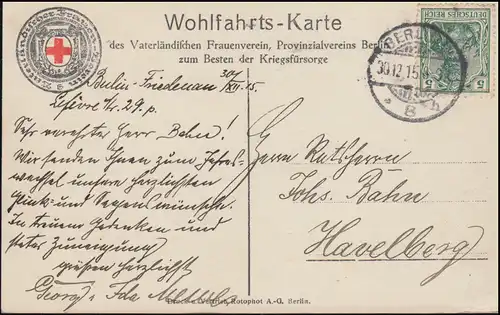 Wohlfahrts-Karte
des Vaterländischen Frauenverein, Provinzialvereins Berlin
zum Besten der Kriegsfürsorge
DEUTSCHES REICH
5 5
BERLIN
30.12.15
B
Berlin-Friedenau 30/XII.15.
Lefèvre Str. 29. p.
Sehr verehrter Herr Bahn!
Wir senden Ihnen zum Jahres-
wechsel unsere herzlichsten
Glück- und Segenswünsche.
In treuem Gedenken und
steter Zuneigung
grüßen herzlichst
Georg u. Ida
Herrn Ratsherrn
Johs. Bahn
Havelberg
Druck u. Vertrieb Rotophot A.-G. Berlin.